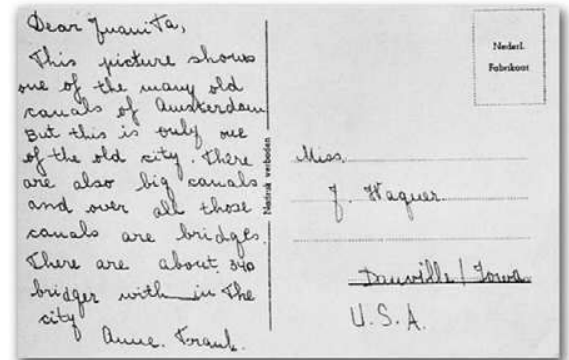 Dear Juanita,
This picture shows
one of the many old
canals of Amsterdam
But this is only one
of the old city. There
are also big canals
and over all those
canals are bridges.
There are about 340
bridges with in the
city
Anne. Frank.
Nadruk verboden
Nederl.
Fabrikaat
Miss
J. Wagner
Danville / Iowa
U.S.A.